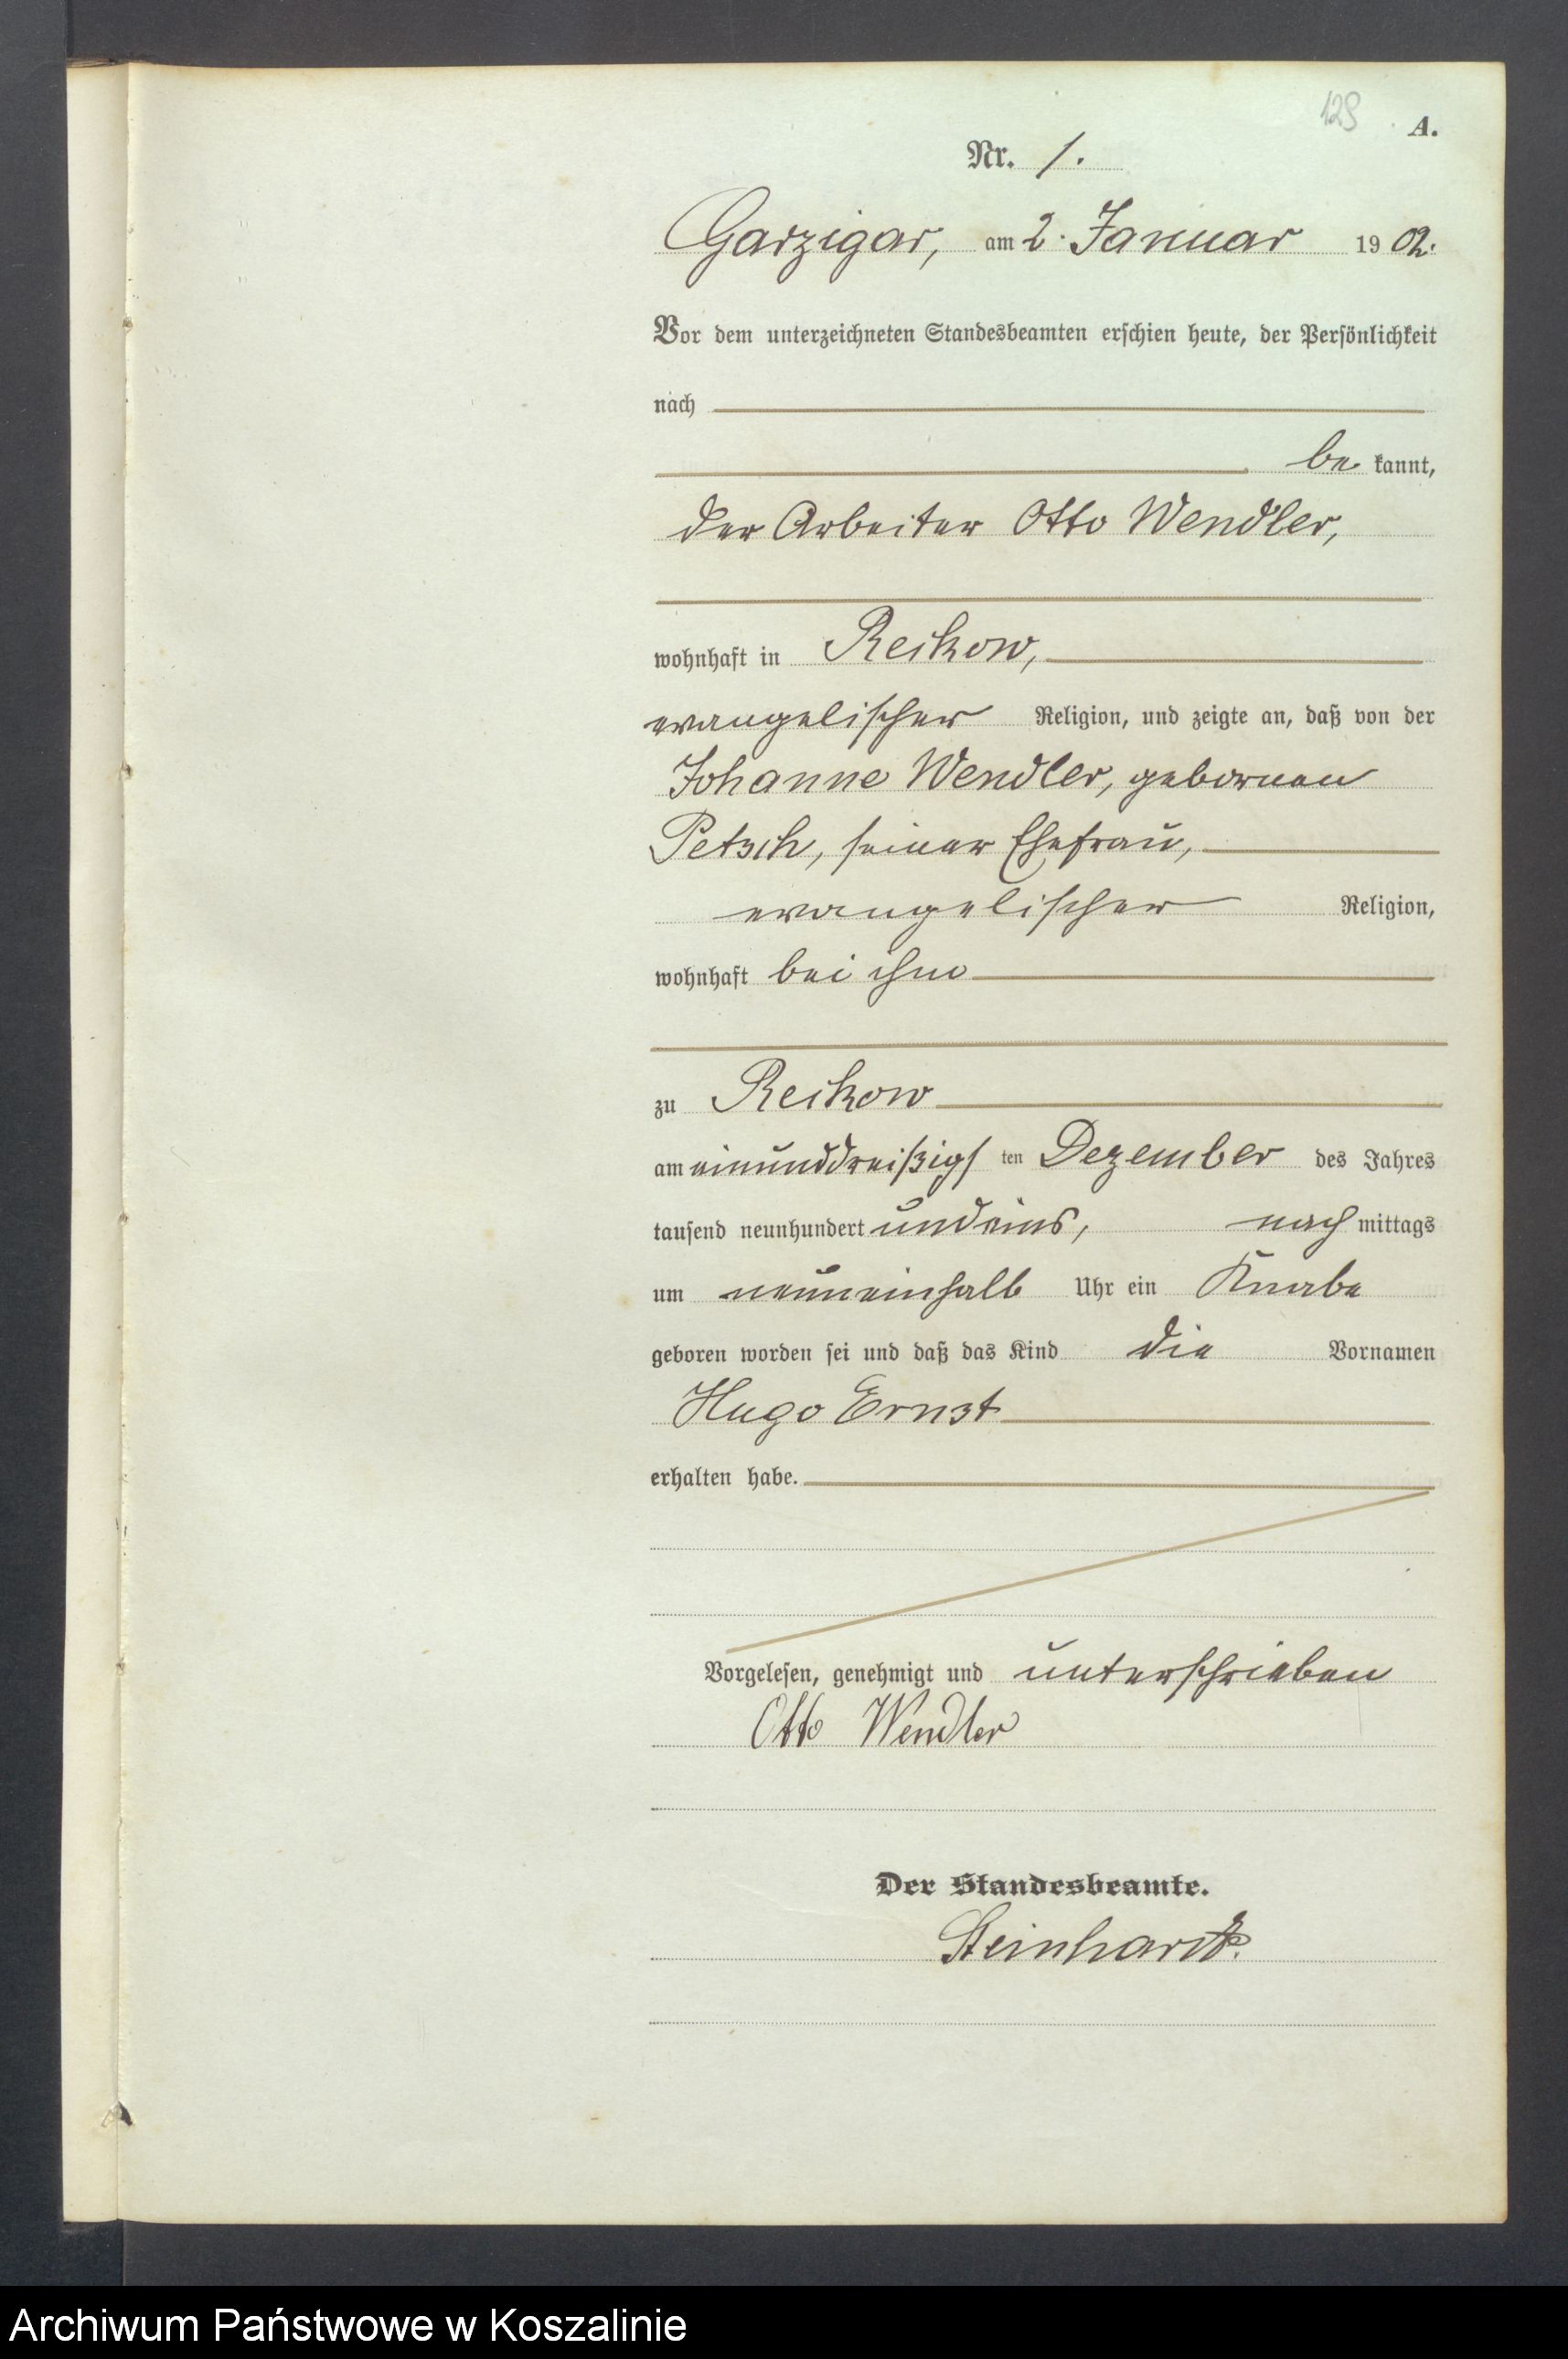 128
A.
Nr. 1.
Garzigar, am 2. Januar 1902.
Vor dem unterzeichneten Standesbeamten erschien heute, der Persönlichkeit
nach
be kannt,
der Arbeiter Otto Wendler,
wohnhaft in Reckow,
evangelischer Religion, und zeigte an, daß von der
Johanne Wendler, gebornen
Petsch, seiner Ehefrau,
evangelischer Religion,
wohnhaft bei ihm
zu Reckow
am einunddreißigs ten Dezember des Jahres
tausend neunhundert undeins, nach mittags
um neuneinhalb Uhr ein Knabe
geboren worden sei und daß das Kind die Vornamen
Hugo Ernst
erhalten habe.
Vorgelesen, genehmigt und unterschrieben
Otto Wendler
Der Standesbeamte.
Steinhardt.
Archiwum Państwowe w Koszalinie